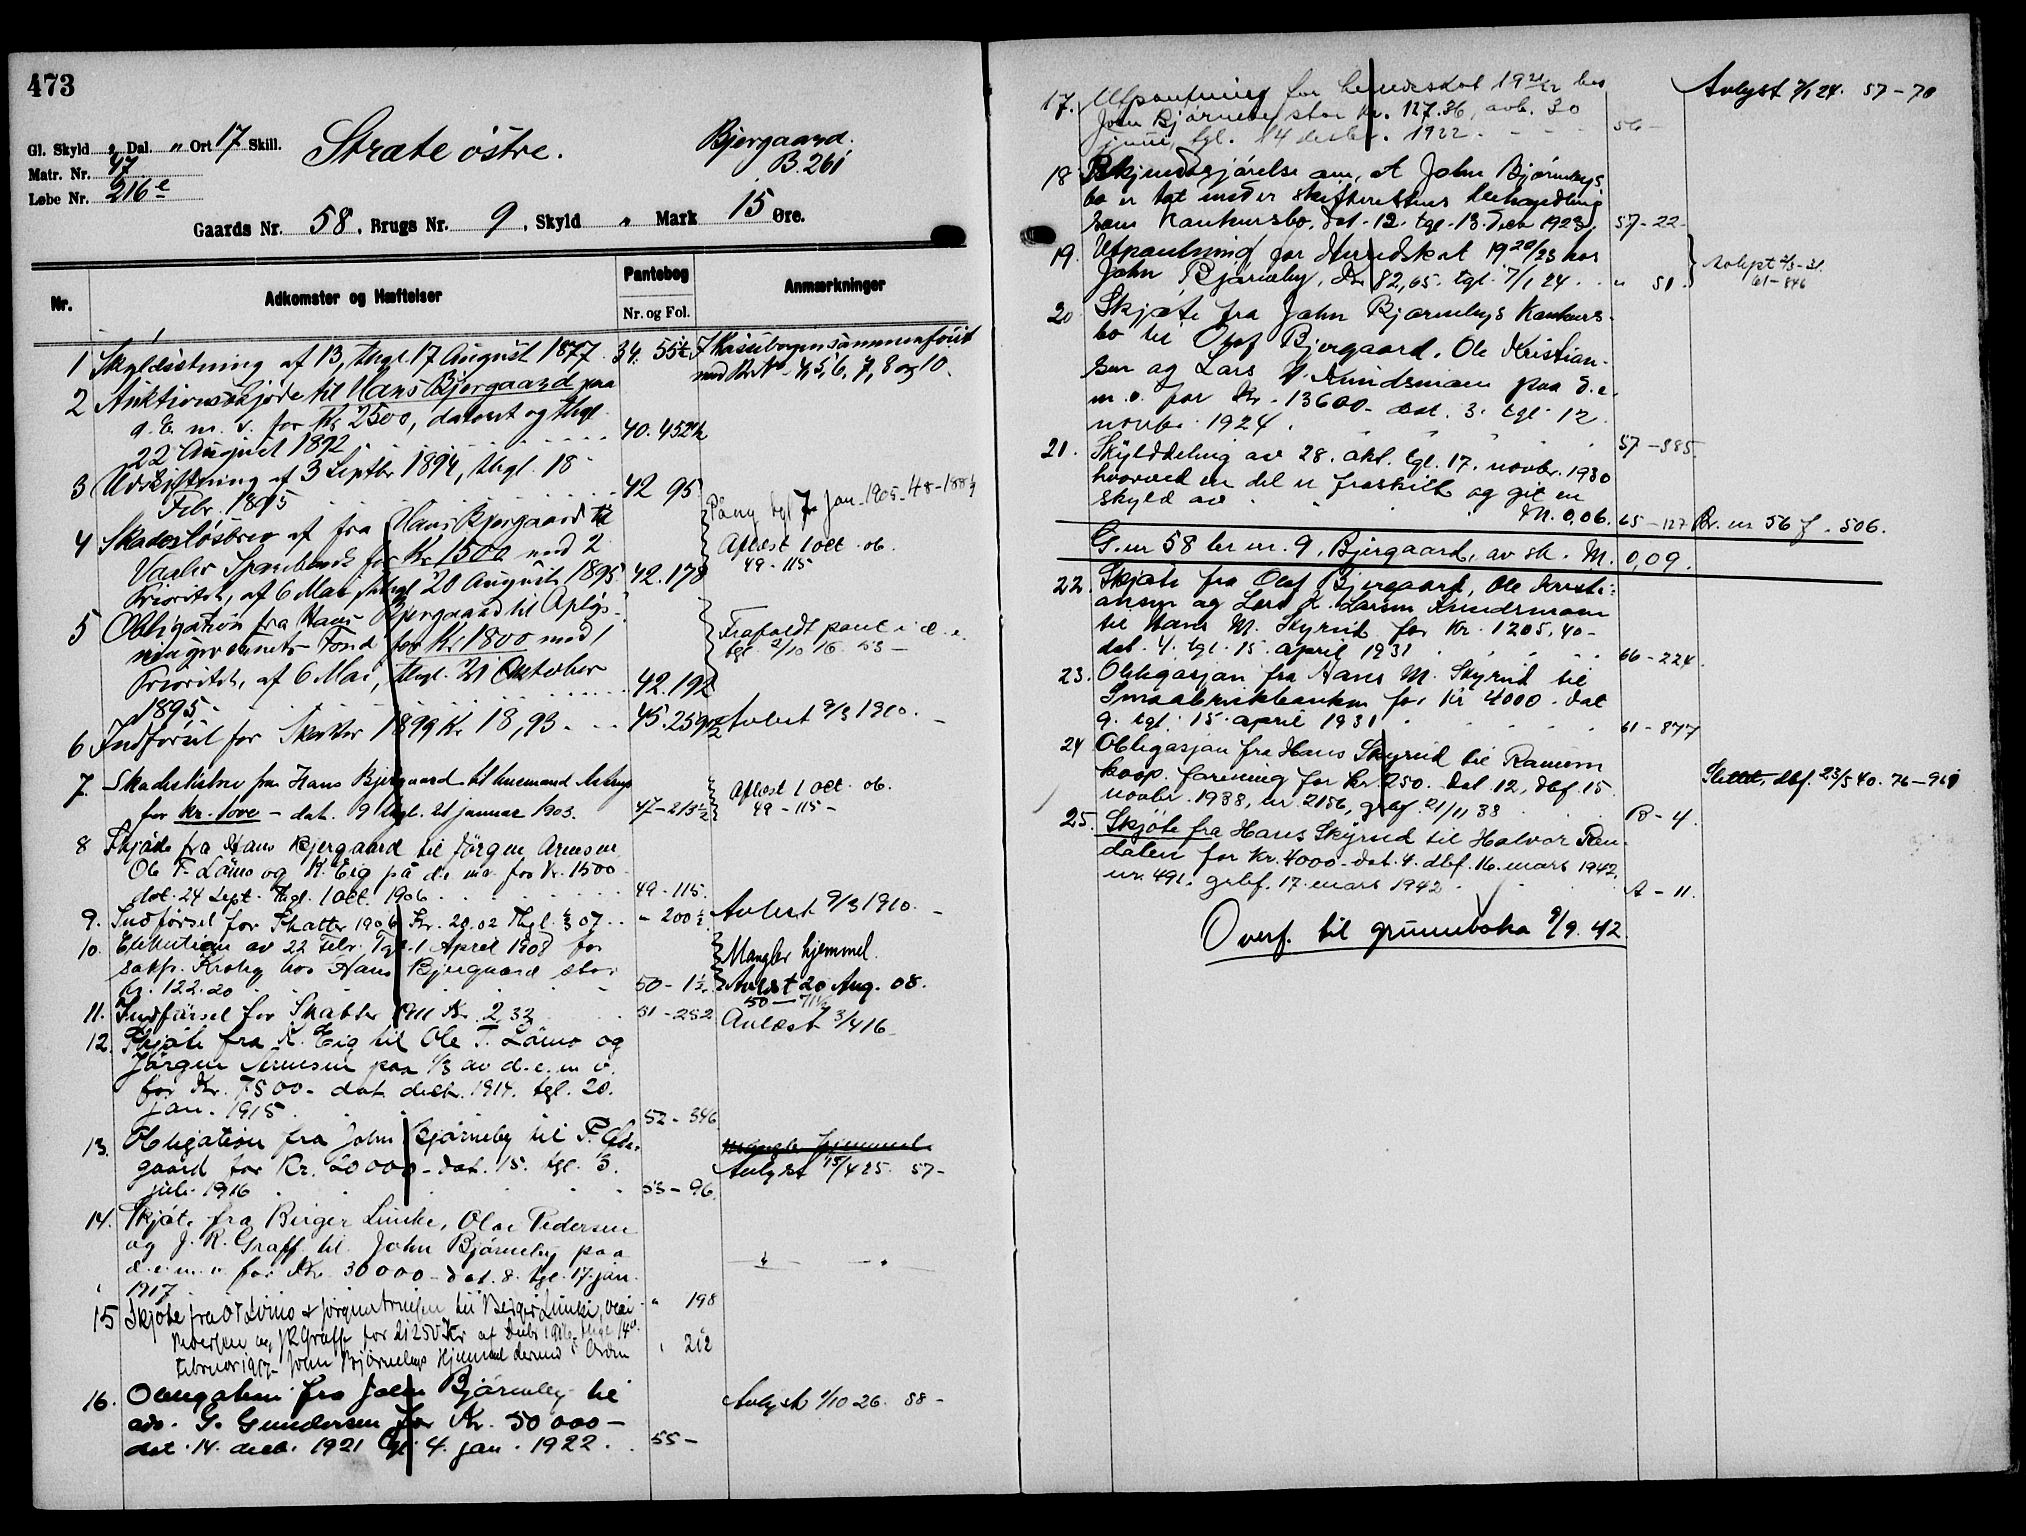 473
Gl. Skyld " Dal. " Ort 17 Skill.
Matr. Nr. 47
Løbe Nr. 216e
Strate östre.
Bjergaard.
B. 261
Gaards Nr. 58, Brugs Nr. 9, Skyld " Mark 15 Øre.
Nr.
Adkomster og Hæftelser
Pantebog
Nr. og Fol.
Anmærkninger
1 Skyldsetning af 13, thgl. 17 August 1877. 34. 55½
sammenføiet
med Br. No 4, 5, 6, 7, 8 og 10.
2 Auktionsskjøde til Hans Bjergaard paa
d. E. m. v. for Kr 2500, dateret og thgl.
22 August 1892 40. 452
3 Udskiftning af 3 Septbr 1894, thgl. 18
Febr. 1895 42 95
4 Skadesløsbrev af fra Hans Bjergaard til
Vaaler Sparebank for Kr 1500 med 2
Prioritet, af 6 Mai, thgl 20 August 1895 42. 178
tgl 7 Jan. 1905. 48-188½
Aflæst 1 Oct. 06.
49-115
5 Obligation fra Hans Bjergaard til Opløs-
Fond for Kr 1800 med 1
Prioritet, af 6 Mai, thgl. 21 Oktober
1895. 42. 192
Frafaldt pant i d. e.
tgl. 2/10 16 53 -
6 Indførsel for Skatter 1899 Kr 18,93. 45. 259
Avlest 9/3 1910. -
7. Skadeslisbrev fra Hans Bjergaard til
for kr. 1000 - dat. 9 thgl. 21 januar 1903. 47-213½
Aflæst 1 Oct. 06.
49-115-
8 Skjöde fra Hans Bjergaard til Jörgen Arnesen,
Ole T. Lömo og K. Eig på d. e. m. v. for Kr. 1500
dat. 24 Sept. thgl. 1 Oct. 1906 49-115.
9. Indførsel for Skatter 1906 Kr. 20.02 Thgl. 07 - 200½
Avlest 9/3 1910. -
10. Exekution av 22 Febr. Tgl. 1 April 1908 for
sakf. Kroby hos Hans Bjergaard stor
kr. 122.20 50-1½
Mangler hjemmel.
Avlæst 20 Aug. 08.
50-71½
11. Indførsel for Skatter 1911 Kr. 2,32 51-252
Avlæst 3/4 16
12. Skjøte fra K. Eig til Ole T. Lömo og
Jörgen Arnesen paa 1/3 av d. e. m. v.
for Kr. 7500 - dat. decbr. 1914. tgl. 20.
jan. 1915 52-346
13. Obligation fra John Bjørneby til P.
gaard for Kr. 20000 - dat. 15. tgl.
juli 1916 53-96.
Mangler hjemmel
Avlyst 15/4 25. 57-
14. Skjøte fra Birger Linke, Olai Pedersen
og J. R. Graff til John Bjørneby paa
d. e. m. v. for Kr. 30000 - dat. 8. tgl. 17. jan.
1917 " 198
15 Skjøte fra O T Lömo & Jörgen Arnesen til Birger Linke, Olai
Pedersen og J R Graff for 21250 Kr af Decbr 1916, thgl 14de
februar 1917 - John Bjørnebys Hjemmel dermed i Orden " 212
16. Obligation fra John Bjørneby til
adv. G. Gundersen for Kr. 50 000 -
dat. 14. decb. 1921 tgl. 4. jan. 1922. 55 -
Avlyst 1/10 26. 58 -
17. Utpantning for herredsskat 1921/22 hos
John Bjørneby stor Kr. 127.36, avh. 30
juni, tgl. 14 decbr. 1922. 56 -
Avlyst 7/1 24. 57-70
18 Bekjendtgjørelse om, at John Bjørnebys
bo er tat under skifterettens behandling
som konkursbo. dat. 12. tgl. 13. decbr 1923. 57-22-
19. Utpantning for Herredskat 1920/23 hos
John Bjørneby, Kr 82,65. tgl. 7/1 24. " 51.
Avlyst 2/3-31.
61-846
20 Skjøte fra John Bjørnebys Konkurs-
bo til Olaf Bjergaard, Ole Kristian-
sen og Lars K. Knudsmoen paa d. e.
m. v. for Kr. 13600 - dat. 3. tgl. 12.
novbr. 1924. 57-585
21. Skylddeling av 28. okt. tgl. 17. novbr. 1930
hvorved en del er fraskilt og git en
skyld av M. 0,06. 65-127 Br. nr 56 f. 506.
G. nr 58 br. nr. 9, Bjergaard, av sk. M. 0,09.
22. Skjøte fra Olaf Bjergaard, Ole Kristi-
ansen og Lars K. Larsen Knudsmoen
til Hans M. Skyrud for Kr. 1205,40-
dat. 4. tgl. 15. april 1931 66-224.
23. Obligasjon fra Hans M. Skyrud til
Smaabrukbanken for Kr 4000. dat
9. tgl. 15. april 1931 61-877
24 Obligasjon fra Hans Skyrud til
koop. forening for Kr 250. Dat 12, dbf. 15.
novbr. 1938, nr. 2156, grbf. 21/11 38 B-4.
Slettet, dbf. 23/5 40. 76-961
25. Skjøte fra Hans Skyrud til Halvor Ran-
dalen for Kr. 4000 - dat. 4. dbf. 16. mars 1942,
nr. 491. grbf. 17. mars 1942. A-11.
Overf. til grunnboka 9/9. 42.